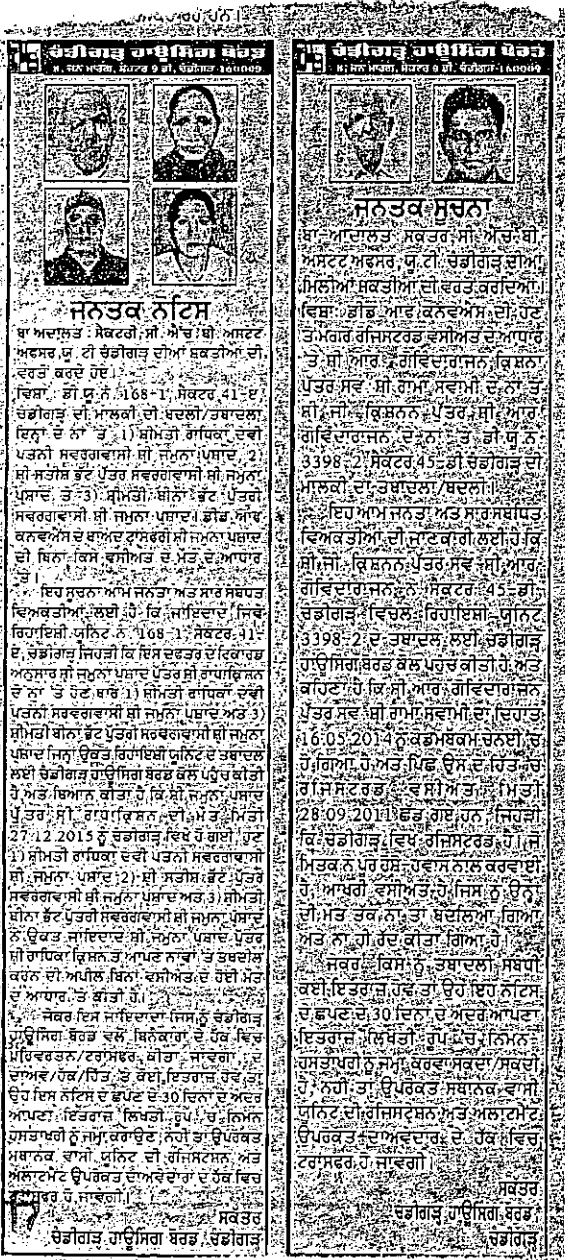 ਰਹੇ ਹਨ।
ਚੰਡੀਗੜ੍ਹ ਹਾਊਸਿੰਗ ਬੋਰਡ
8, ਜਨ ਮਾਰਗ, ਸੈਕਟਰ 9 ਡੀ, ਚੰਡੀਗੜ੍ਹ-160009
ਜਨਤਕ ਨੋਟਿਸ
ਬਾ ਅਦਾਲਤ : ਸੈਕਟਰੀ ਸੀ ਐਚ ਬੀ ਅਸਟੇਟ
ਅਫਸਰ, ਯੂ ਟੀ ਚੰਡੀਗੜ੍ਹ ਦੀਆਂ ਸ਼ਕਤੀਆਂ ਦੀ
ਵਰਤੋਂ ਕਰਦੇ ਹੋਏ।
ਵਿਸ਼ਾ : ਡੀ.ਯੂ.ਨੰ. 168-1, ਸੈਕਟਰ 41-ਏ,
ਚੰਡੀਗੜ੍ਹ ਦੀ ਮਾਲਕੀ ਦੀ ਬਦਲੀ/ਤਬਾਦਲਾ
ਇਨ੍ਹਾਂ ਦੇ ਨਾਂ 'ਤੇ 1) ਸ਼੍ਰੀਮਤੀ ਰਾਧਿਕਾ ਦੇਵੀ
ਪਤਨੀ ਸਵਰਗਵਾਸੀ ਸ਼੍ਰੀ ਜਮੁਨਾ ਪ੍ਰਸ਼ਾਦ, 2)
ਸ਼੍ਰੀ ਸਤੀਸ਼ ਭੱਟ ਪੁੱਤਰ ਸਵਰਗਵਾਸੀ ਸ਼੍ਰੀ ਜਮੁਨਾ
ਪ੍ਰਸ਼ਾਦ ਤੇ 3) ਸ਼੍ਰੀਮਤੀ ਬੀਨਾ ਭੱਟ ਪੁੱਤਰੀ
ਸਵਰਗਵਾਸੀ ਸ਼੍ਰੀ ਜਮੁਨਾ ਪ੍ਰਸ਼ਾਦ। ਡੀਡ ਆਫ
ਕਨਵੇਅੰਸ ਦੇ ਬਾਅਦ ਟ੍ਰਾਂਸਫਰੀ ਸ਼੍ਰੀ ਜਮੁਨਾ ਪ੍ਰਸ਼ਾਦ
ਦੀ ਬਿਨਾਂ ਕਿਸੇ ਵਸੀਅਤ ਦੇ ਮੌਤ ਦੇ ਆਧਾਰ
'ਤੇ।
ਇਹ ਸੂਚਨਾ ਆਮ ਜਨਤਾ ਅਤੇ ਸਾਰੇ ਸਬੰਧਤ
ਵਿਅਕਤੀਆਂ ਲਈ ਹੈ ਕਿ ਜਾਇਦਾਦ ਜਿਵੇਂ
ਰਿਹਾਇਸ਼ੀ ਯੂਨਿਟ ਨੰ. 168-1, ਸੈਕਟਰ 41-
ਏ, ਚੰਡੀਗੜ੍ਹ ਜਿਹੜੀ ਕਿ ਇਸ ਦਫਤਰ ਦੇ ਰਿਕਾਰਡ
ਅਨੁਸਾਰ ਸ਼੍ਰੀ ਜਮੁਨਾ ਪ੍ਰਸ਼ਾਦ ਪੁੱਤਰ ਸ਼੍ਰੀ ਰਾਧਾਕ੍ਰਿਸ਼ਨ
ਦੇ ਨਾਂ 'ਤੇ ਹੋਣ ਬਾਰੇ 1) ਸ਼੍ਰੀਮਤੀ ਰਾਧਿਕਾ ਦੇਵੀ
ਪਤਨੀ ਸਵਰਗਵਾਸੀ ਸ਼੍ਰੀ ਜਮੁਨਾ ਪ੍ਰਸ਼ਾਦ ਅਤੇ 3)
ਸ਼੍ਰੀਮਤੀ ਬੀਨਾ ਭੱਟ ਪੁੱਤਰੀ ਸਵਰਗਵਾਸੀ ਸ਼੍ਰੀ ਜਮੁਨਾ
ਪ੍ਰਸ਼ਾਦ ਜਿਨ੍ਹਾਂ ਉਕਤ ਰਿਹਾਇਸ਼ੀ ਯੂਨਿਟ ਦੇ ਤਬਾਦਲੇ
ਲਈ ਚੰਡੀਗੜ੍ਹ ਹਾਊਸਿੰਗ ਬੋਰਡ ਕੋਲ ਪਹੁੰਚ ਕੀਤੀ
ਹੈ ਅਤੇ ਬਿਆਨ ਕੀਤਾ ਹੈ ਕਿ ਸ਼੍ਰੀ ਜਮੁਨਾ ਪ੍ਰਸ਼ਾਦ
ਪੁੱਤਰ ਸ਼੍ਰੀ ਰਾਧਾਕ੍ਰਿਸ਼ਨ ਦੀ ਮੌਤ ਮਿਤੀ
27.12.2015 ਨੂੰ ਚੰਡੀਗੜ੍ਹ ਵਿਖੇ ਹੋ ਗਈ। ਹੁਣ
1) ਸ਼੍ਰੀਮਤੀ ਰਾਧਿਕਾ ਦੇਵੀ ਪਤਨੀ ਸਵਰਗਵਾਸੀ
ਸ਼੍ਰੀ ਜਮੁਨਾ ਪ੍ਰਸ਼ਾਦ, 2) ਸ਼੍ਰੀ ਸਤੀਸ਼ ਭੱਟ ਪੁੱਤਰ
ਸਵਰਗਵਾਸੀ ਸ਼੍ਰੀ ਜਮੁਨਾ ਪ੍ਰਸ਼ਾਦ ਅਤੇ 3) ਸ਼੍ਰੀਮਤੀ
ਬੀਨਾ ਭੱਟ ਪੁੱਤਰੀ ਸਵਰਗਵਾਸੀ ਸ਼੍ਰੀ ਜਮੁਨਾ ਪ੍ਰਸ਼ਾਦ
ਨੇ ਉਕਤ ਜਾਇਦਾਦ ਸ਼੍ਰੀ ਜਮੁਨਾ ਪ੍ਰਸ਼ਾਦ ਪੁੱਤਰ
ਸ਼੍ਰੀ ਰਾਧਿਕਾ ਕ੍ਰਿਸ਼ਨ ਤੋਂ ਆਪਣੇ ਨਾਵਾਂ 'ਤੇ ਤਬਦੀਲ
ਕਰਨ ਦੀ ਅਪੀਲ ਬਿਨਾਂ ਵਸੀਅਤ ਦੇ ਹੋਈ ਮੌਤ
ਦੇ ਆਧਾਰ 'ਤੇ ਕੀਤੀ ਹੈ।
ਜੇਕਰ ਇਸ ਜਾਇਦਾਦ ਜਿਸ ਨੂੰ ਚੰਡੀਗੜ੍ਹ
ਹਾਊਸਿੰਗ ਬੋਰਡ ਵਲੋਂ ਬਿਨੈਕਾਰਾਂ ਦੇ ਹੱਕ ਵਿਚ
ਪਰਿਵਰਤਨ/ਟਰਾਂਸਫਰ ਕੀਤਾ ਜਾਵੇਗਾ ਦੇ
ਦਾਅਵੇ/ਹੱਕ/ਹਿੱਤ, ਤੇ ਕੋਈ ਇਤਰਾਜ਼ ਹੋਵੇ ਤਾਂ
ਉਹ ਇਸ ਨੋਟਿਸ ਦੇ ਛਪਣ ਦੇ 30 ਦਿਨਾਂ ਦੇ ਅੰਦਰ
ਆਪਣਾ ਇਤਰਾਜ਼ ਲਿਖਤੀ ਰੂਪ 'ਚ ਨਿਮਨ
ਹਸਤਾਖਰੀ ਨੂੰ ਜਮ੍ਹਾਂ ਕਰਾਉਣ, ਨਹੀਂ ਤਾਂ ਉਪਰੋਕਤ
ਸਥਾਨਕ ਵਾਸੀ ਯੂਨਿਟ ਦੀ ਰਜਿਸਟ੍ਰੇਸ਼ਨ ਅਤੇ
ਅਲਾਟਮੈਂਟ ਉਪਰੋਕਤ ਦਾਅਵੇਦਾਰਾਂ ਦੇ ਹੱਕ ਵਿਚ
ਟਰਾਂਸਫਰ ਹੋ ਜਾਵੇਗੀ।
ਸਕੱਤਰ
ਚੰਡੀਗੜ੍ਹ ਹਾਊਸਿੰਗ ਬੋਰਡ, ਚੰਡੀਗੜ੍ਹ
ਚੰਡੀਗੜ੍ਹ ਹਾਊਸਿੰਗ ਬੋਰਡ
8, ਜਨ ਮਾਰਗ, ਸੈਕਟਰ 9 ਡੀ, ਚੰਡੀਗੜ੍ਹ-160009
ਜਨਤਕ ਸੂਚਨਾ
ਬਾ-ਅਦਾਲਤ ਸਕੱਤਰ ਸੀ ਐਚ ਬੀ
ਅਸਟੇਟ ਅਫਸਰ, ਯੂ ਟੀ, ਚੰਡੀਗੜ੍ਹ ਦੀਆਂ
ਮਿਲੀਆਂ ਸ਼ਕਤੀਆਂ ਦੀ ਵਰਤੋਂ ਕਰਦਿਆਂ।
ਵਿਸ਼ਾ: ਡੀਡ ਆਫ ਕਨਵੇਅੰਸ ਦੀ ਹੋਣ
ਤੋਂ ਮਗਰੋਂ ਰਜਿਸਟਰਡ ਵਸੀਅਤ ਦੇ ਆਧਾਰ
'ਤੇ ਸ਼੍ਰੀ ਆਰ ਗੋਵਿੰਦਾਰਾਜਨ ਕ੍ਰਿਸ਼ਨਾ
ਪੁੱਤਰ ਸਵ. ਸ਼੍ਰੀ ਰਾਮਾ ਸਵਾਮੀ ਦੇ ਨਾਂ ਤੋਂ
ਸ਼੍ਰੀ ਜੀ ਕ੍ਰਿਸ਼ਨਨ ਪੁੱਤਰ ਸ਼੍ਰੀ ਆਰ
ਗੋਵਿੰਦਾਰਾਜਨ ਦੇ ਨਾਂ 'ਤੇ ਡੀ.ਯੂ.ਨੰ.
3398-2, ਸੈਕਟਰ 45-ਡੀ ਚੰਡੀਗੜ੍ਹ ਦੀ
ਮਾਲਕੀ ਦਾ ਤਬਾਦਲਾ/ਬਦਲਾ।
ਇਹ ਆਮ ਜਨਤਾ ਅਤੇ ਸਾਰੇ ਸਬੰਧਿਤ
ਵਿਅਕਤੀਆਂ ਦੀ ਜਾਣਕਾਰੀ ਲਈ ਹੈ ਕਿ
ਸ਼੍ਰੀ ਜੀ. ਕ੍ਰਿਸ਼ਨਨ ਪੁੱਤਰ ਸਵ. ਸ਼੍ਰੀ ਆਰ.
ਗੋਵਿੰਦਾਰਾਜਨ ਨੇ ਸੈਕਟਰ 45-ਡੀ,
ਚੰਡੀਗੜ੍ਹ ਵਿਚਲੇ ਰਿਹਾਇਸ਼ੀ ਯੂਨਿਟ
3398-2 ਦੇ ਤਬਾਦਲੇ ਲਈ ਚੰਡੀਗੜ੍ਹ
ਹਾਊਸਿੰਗ ਬੋਰਡ ਕੋਲ ਪਹੁੰਚ ਕੀਤੀ ਹੈ ਅਤੇ
ਕਹਿਣਾ ਹੈ ਕਿ ਸ਼੍ਰੀ ਆਰ ਗੋਵਿੰਦਾਰਾਜਨ
ਪੁੱਤਰ ਸਵ. ਸ਼੍ਰੀ ਰਾਮਾ ਸਵਾਮੀ ਦਾ ਦਿਹਾਂਤ
16.05.2014 ਨੂੰ ਕੋਡਮਬਕਮ ਚੇਨਈ 'ਚ
ਹੋ ਗਿਆ ਹੈ ਅਤੇ ਪਿਛੇ ਉਸ ਦੇ ਹਿੱਤ 'ਚ
ਰਜਿਸਟਰਡ ਵਸੀਅਤ ਮਿਤੀ
28.09.2011 ਛੱਡ ਗਏ ਹਨ, ਜਿਹੜੀ
ਕਿ ਚੰਡੀਗੜ੍ਹ ਵਿਖੇ ਰਜਿਸਟਰਡ ਹੈ। ਜੋ
ਮ੍ਰਿਤਕ ਨੇ ਪੂਰੇ ਹੋਸ਼-ਹਵਾਸ ਨਾਲ ਕਰਵਾਈ
ਹੈ, ਆਖਰੀ ਵਸੀਅਤ ਹੈ ਜਿਸ ਨੂੰ ਉਨ੍ਹਾਂ
ਦੀ ਮੌਤ ਤੱਕ ਨਾ ਤਾਂ ਬਦਲਿਆ ਗਿਆ
ਅਤੇ ਨਾ ਹੀ ਰੱਦ ਕੀਤਾ ਗਿਆ ਹੈ।
ਜੇਕਰ ਕਿਸੇ ਨੂੰ ਤਬਾਦਲੇ ਸਬੰਧੀ
ਕੋਈ ਇਤਰਾਜ਼ ਹੋਵੇ ਤਾਂ ਉਹ ਇਹ ਨੋਟਿਸ
ਦੇ ਛਪਣ ਦੇ 30 ਦਿਨਾਂ ਦੇ ਅੰਦਰ ਆਪਣਾ
ਇਤਰਾਜ਼ ਲਿਖਤੀ ਰੂਪ 'ਚ ਨਿਮਨ
ਹਸਤਾਖਰੀ ਨੂੰ ਜਮ੍ਹਾਂ ਕਰਵਾ ਸਕਦਾ/ਸਕਦੀ
ਹੈ, ਨਹੀਂ ਤਾਂ ਉਪਰੋਕਤ ਸਥਾਨਕ ਵਾਸੀ
ਯੂਨਿਟ ਦੀ ਰਜਿਸਟ੍ਰੇਸ਼ਨ ਅਤੇ ਅਲਾਟਮੈਂਟ
ਉਪਰੋਕਤ ਦਾਅਵੇਦਾਰ ਦੇ ਹੱਕ ਵਿਚ
ਟਰਾਂਸਫਰ ਹੋ ਜਾਵੇਗੀ।
ਸਕੱਤਰ
ਚੰਡੀਗੜ੍ਹ ਹਾਊਸਿੰਗ ਬੋਰਡ,
ਚੰਡੀਗੜ੍ਹ